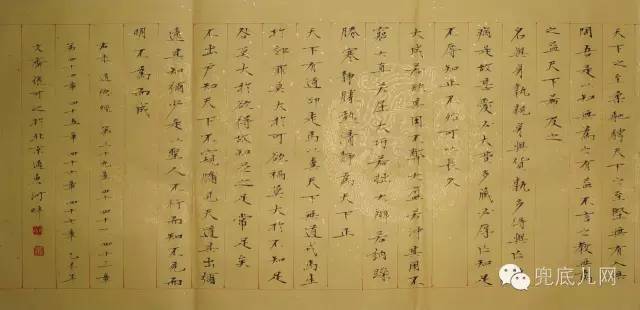 天下之至柔馳騁天下之至堅無有入無
間吾是以知無為之有益不言之教無為
之益天下希及之
名與身孰親身與貨孰多得與亡孰
病是故甚愛必大費多藏必厚亡知足
不辱知止不殆可以長久
大成若缺其用不弊大盈若沖其用不
窮大直若屈大巧若拙大辯若訥躁
勝寒靜勝熱清靜為天下正
天下有道卻走馬以糞天下無道戎馬生
於郊罪莫大於可欲禍莫大於不知足
咎莫大於欲得故知足之足常足矣
不出戶知天下不窺牖見天道其出彌
遠其知彌少是以聖人不行而知不見而
明不為而成
道德經 第三十九章 四十 四十一 四十三章
第四十四章 四十五章 四十六章 四十七章 乙未年
於北京通惠河畔
兜底儿网